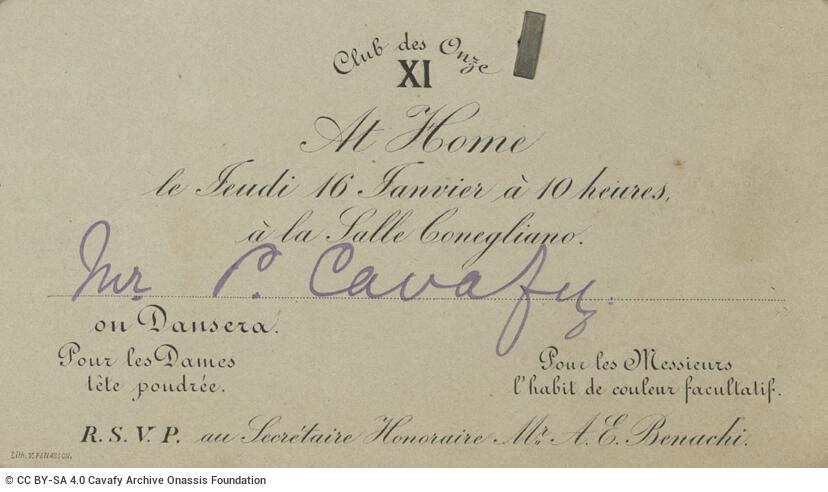 Club des Onze
XI
At Home
le Jeudi 16 Janvier à 10 heures,
à la Salle Conegliano.
Mr. P. Cavafy.
on Dansera.
Pour les Dames
tête poudrée.
Pour les Messieurs
l'habit de couleur facultatif.
R.S.V.P. au Secrétaire Honoraire Mr. A.E. Benachi.
Lith. V. PENASSON.
© CC BY-SA 4.0 Cavafy Archive Onassis Foundation